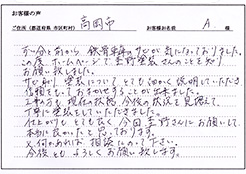 お客様の声
ご住所(都道府県 市区町村) 高岡市 お客様お名前 A. 様
ずい分と前から 鉄骨車庫のサビが気になっておりました。
この度 ホームページで 塗装さんのことを知り
お願い致しました。
サビ別、塗装についてとても細かく説明していただき
信頼をしておまかせすることが出来ました。
工事の方も 現在の状態、今後の状況を見据えて、
丁寧に塗装をしていただきました。
仕上がりも とても良く 今回 さんにお願いして
本当に良かったと思っております。
又何かあれば 相談にのって下さい。
今後とも よろしくお願い致します。